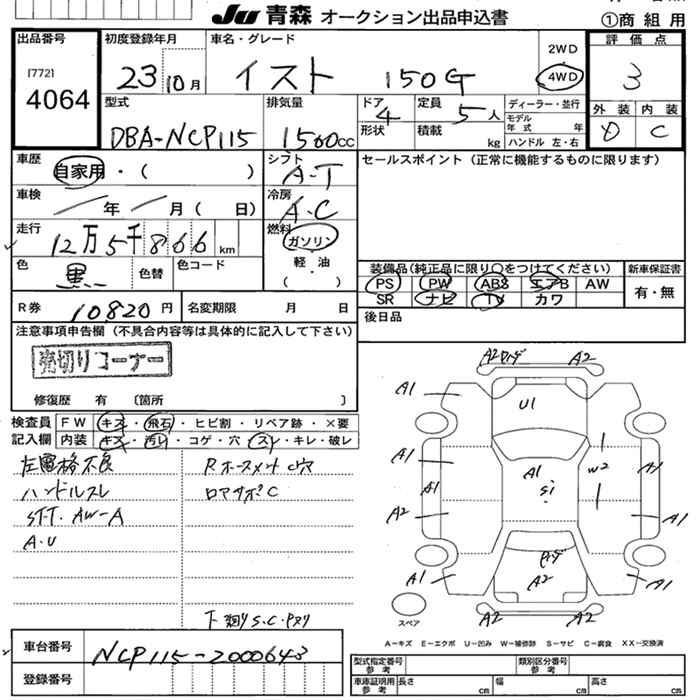 JU 青森 オークション出品申込書
①商 組 用
出品番号
[772]
4064
初度登録年月
23 10月
車名・グレード
イスト 150G
2WD
4WD
評価点
3
外装 内装
D C
型式
DBA-NCP115
排気量
1500cc
ドア
4
形状
定員
5人
積載
kg
ディーラー・並行
モデル年式 年
ハンドル 左・右
車歴
自家用・( )
シフト
A-T
セールスポイント(正常に機能するものに限ります)
車検
年 月( 日)
冷房
A・C
走行
12万5千866km
燃料
ガソリン
軽・油
( )
色
黒
色替
色コード
装備品(純正品に限り〇をつけてください)
PS PW ABS エアB AW
SR ナビ TV カワ
新車保証書
有・無
R券
10820円
名変期限 月 日
後日品
注意事項申告欄(不具合内容等は具体的に記入して下さい)
売切りコーナー
修復歴 有 〔箇所 〕
検査員記入欄
FW キズ・飛石・ヒビ割・リペア跡・×要
内装 キズ・汚レ・コゲ・穴・スレ・キレ・破レ
ハンドルスレ
ST-T. AW-A
A・U
下廻りS.C.
A2 A2
A1
U1
A1
A1
S1
W2
A1
A1
A2
A1
A1
A2
A1
A2 A2
スペア
A-キズ E-エクボ U-凹み W-補修跡 S-サビ C-腐食 XX-交換済
車台番号
NCP115-2000643
登録番号
型式指定番号
参考
類別区分番号
参考
車庫証明用
参考
長さ cm
幅 cm
高さ cm